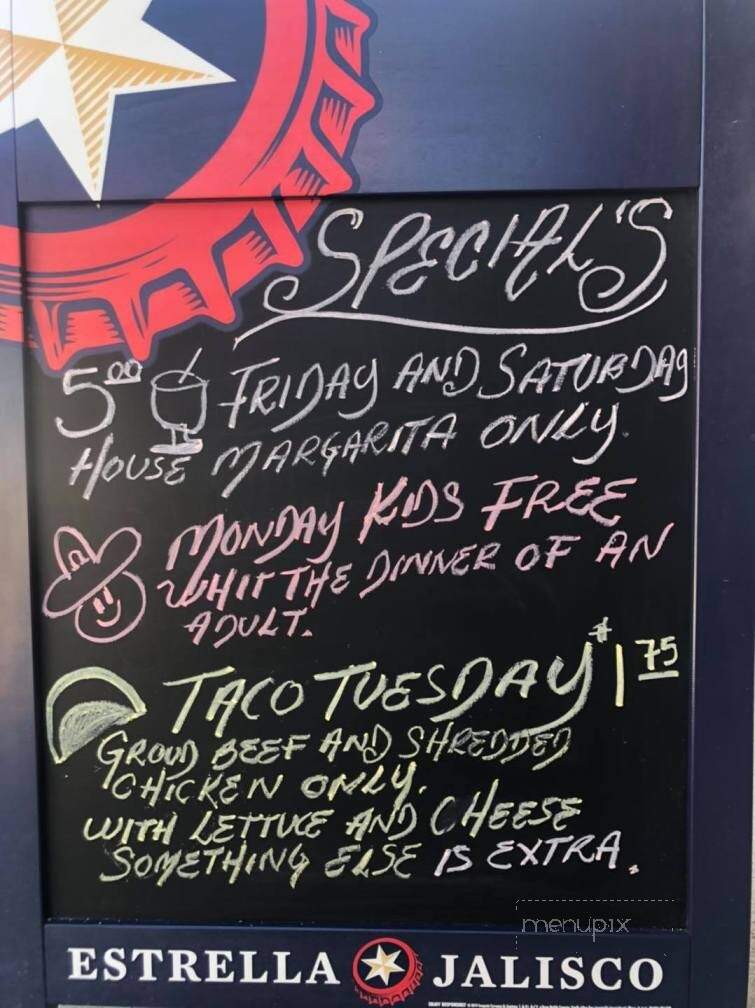 SPECIAL'S
5.00 FRIDAY AND SATURDAY
HOUSE MARGARITA ONLY.
MONDAY KIDS FREE
WHIT THE DINNER OF AN
ADULT.
TACO TUESDAY $1.75
GROUD BEEF AND SHREDDED
CHICKEN ONLY.
WITH LETTUCE AND CHEESE
SOMETHING ELSE IS EXTRA.
menupix
ESTRELLA JALISCO